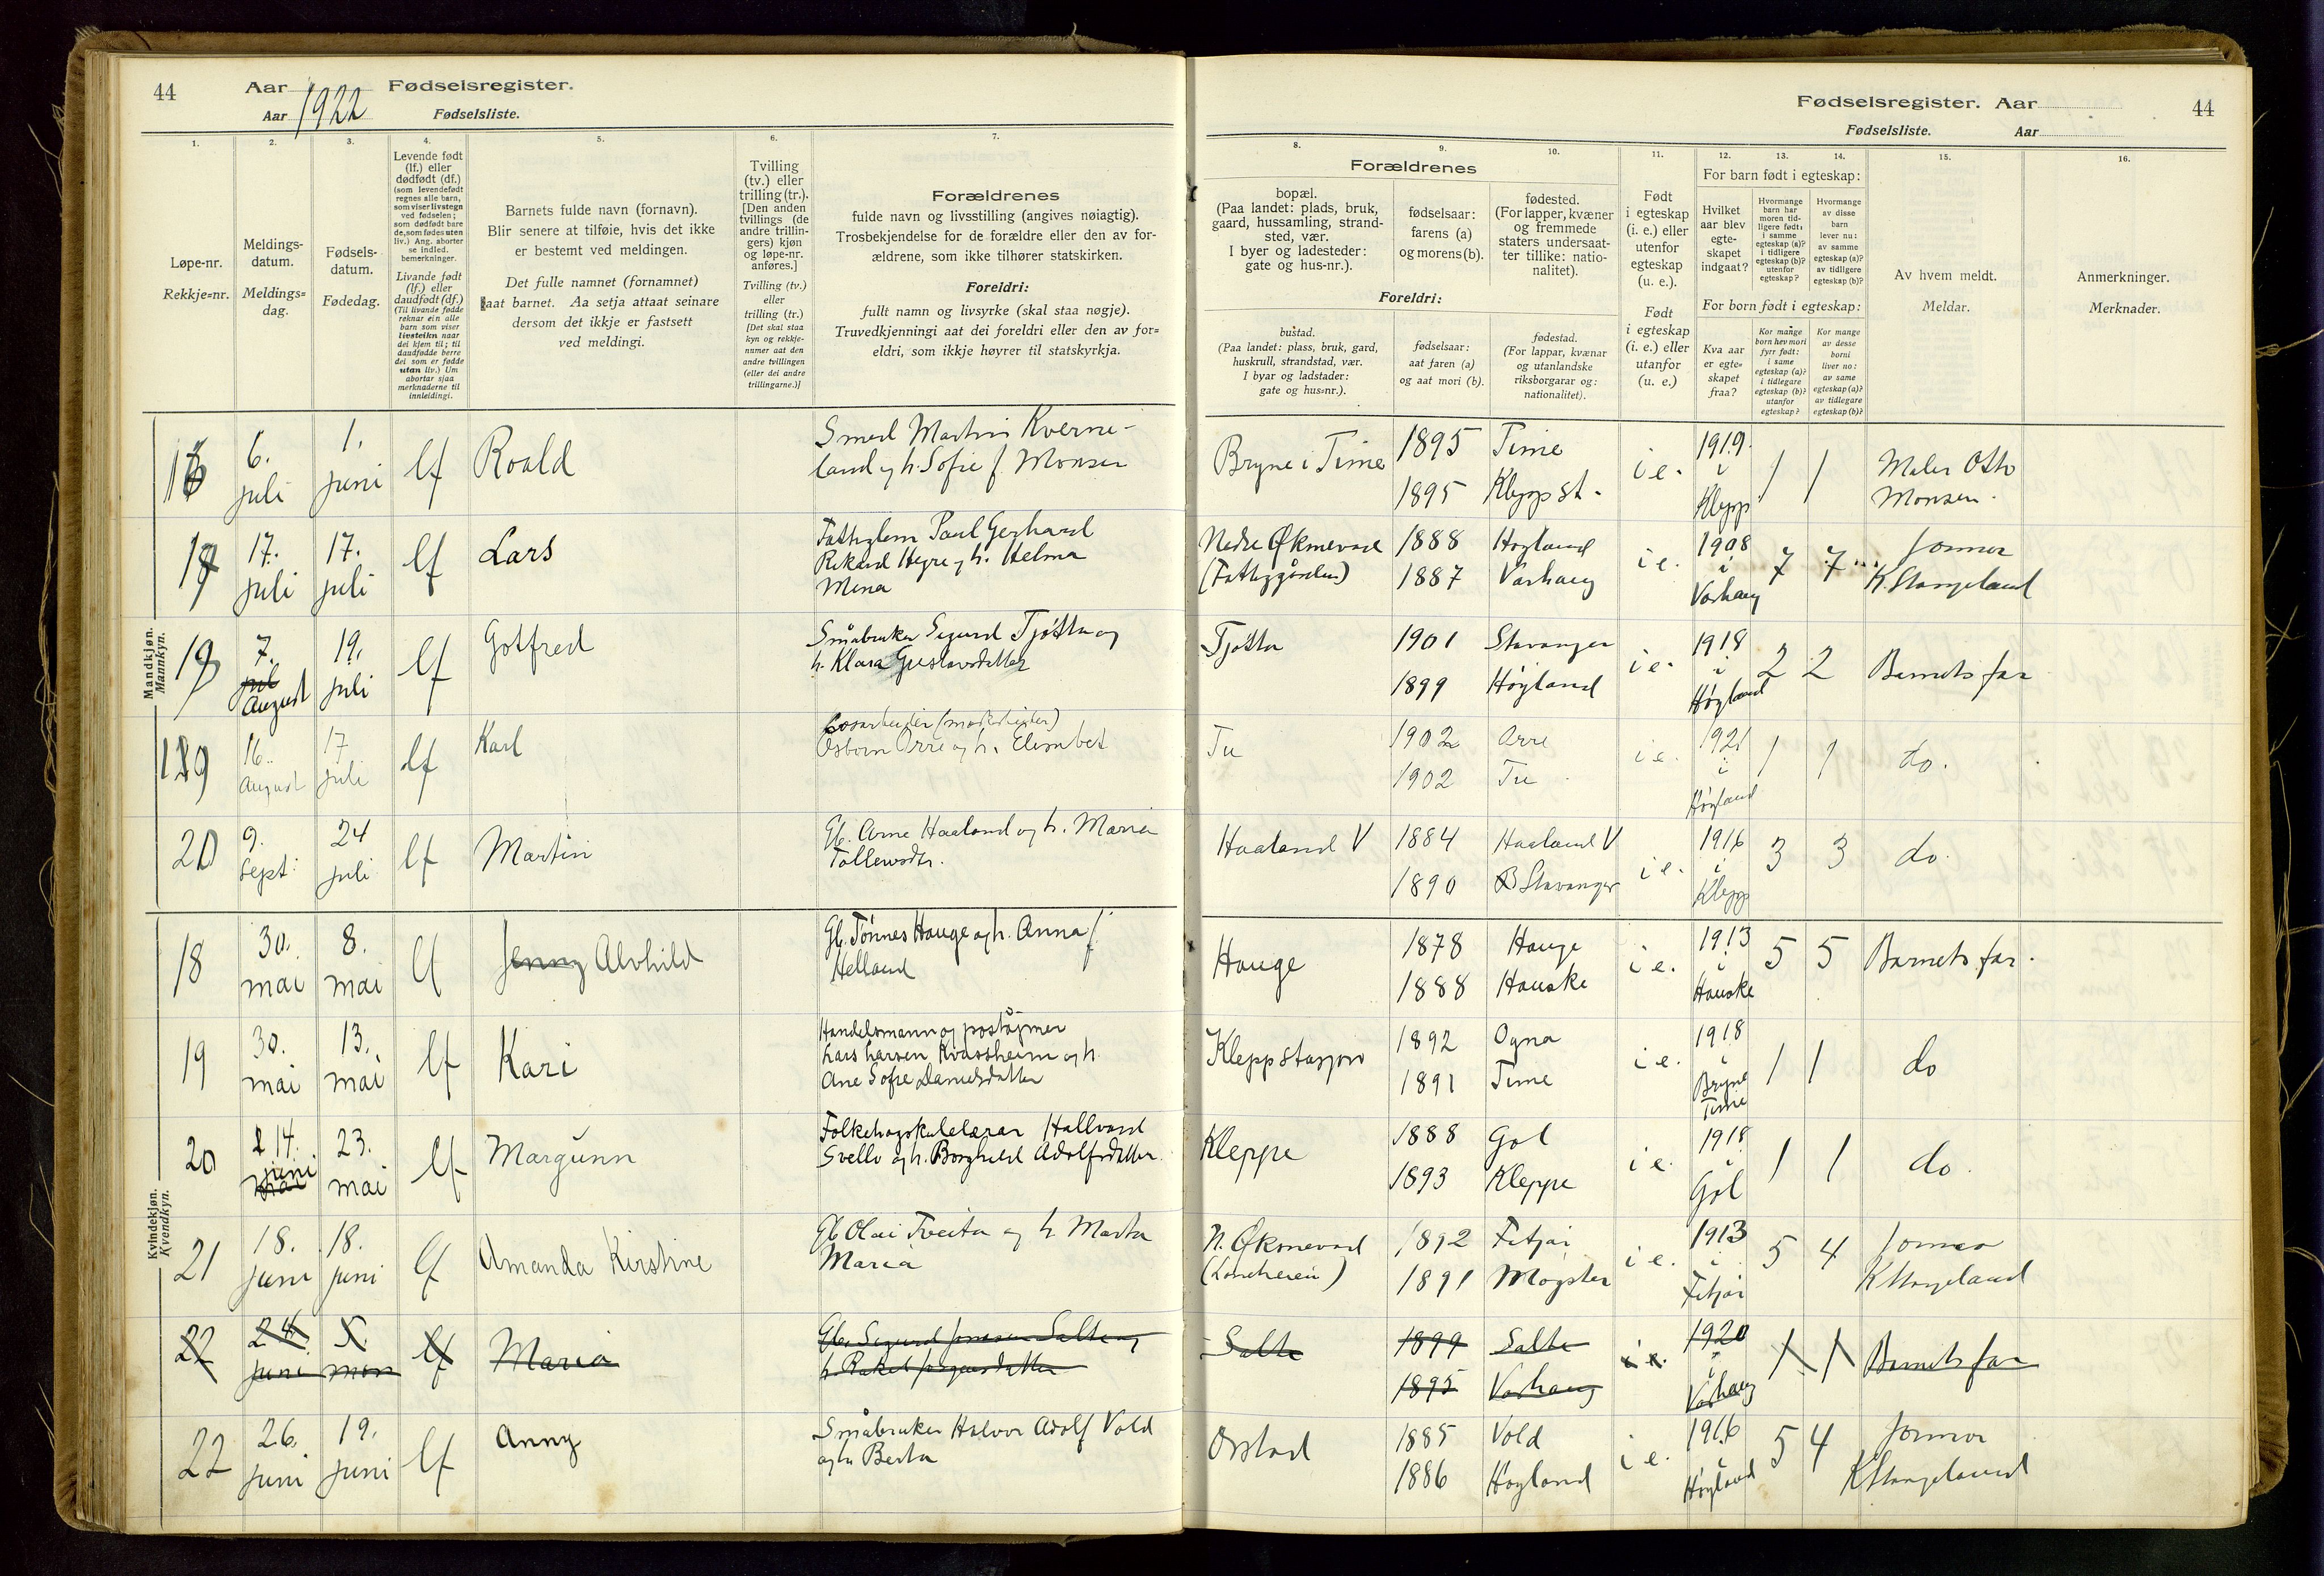 44
Aar 1922 Fødselsregister.
Aar Fødselsliste.
Fødselsregister. Aar
Fødselsliste. Aar
44
1.
Løpe-nr.
Rekkje=nr.
2.
Meldings-
datum.
Meldings=
dag.
3.
Fødsels-
datum.
Fødedag.
4.
Levende født
(lf.) eller
dødfødt (df.)
(som levendefødt
regnes alle barn,
som viser livstegn
ved fødselen;
som dødfødt bare
de, som fødes uten
liv.) Ang. aborter
se indled.
bemerkninger.
Livande født
(lf.) eller
daudfødt (df.)
(Til livande fødde
reknar ein alle
barn som viser
livsteikn naar
dei kjem til; til
daudfødde berre
dei som er fødde
utan liv.) Um
abortar sjaa
merknaderne til
innleidingi.
5.
Barnets fulde navn (fornavn).
Blir senere at tilføie, hvis det ikke
er bestemt ved meldingen.
Det fulle namnet (fornamnet)
aat barnet. Aa setja attaat seinare
dersom det ikkje er fastsett
ved meldingi.
6.
Tvilling
(tv.) eller
trilling (tr.).
[Den anden
tvillings (de
andre trillin-
gers) kjøn
og løpe-nr.
anføres.]
Tvilling (tv.)
eller
trilling (tr.)
[Det skal staa
kyn og rekkje-
numer aat den
andre tvillingen
(eller dei andre
trillingarne.)]
7.
Forældrenes
fulde navn og livsstilling (angives nøiagtig).
Trosbekjendelse for de forældre eller den av for-
ældrene, som ikke tilhører statskirken.
Foreldri:
fullt namn og livsyrke (skal staa nøgje).
Truvedkjenningi aat dei foreldri eller den av for=
eldri, som ikkje høyrer til statskyrkja.
8.
Forældrenes
bopæl.
(Paa landet: plads, bruk,
gaard, hussamling, strand-
sted, vær.
I byer og ladesteder:
gate og hus-nr.).
Foreldri:
bustad.
(Paa landet: plass, bruk, gard,
huskrull, strandstad, vær.
I byar og ladstader:
gate og hus=nr.).
9.
fødselsaar:
farens (a)
og morens (b).
fødselsaar:
aat faren (a)
og aat mori (b).
10.
fødested.
(For lapper, kvæner
og fremmede
staters undersaat-
ter tillike: natio-
nalitet).
fødestad.
(For lappar, kvænar
og utanlandske
riksborgarar og:
nationalitet).
11.
Født
i egteskap
(i. e.) eller
utenfor
egteskap
(u. e.).
Født
i egteskap
(i. e.) eller
utanfor
(u. e.)
12.
For barn født i egteskap:
Hvilket
aar blev
egte-
skapet
indgaat?
For born født i egteskap:
Kva aar
er egte=
skapet
fraa?
13.
Hvormange
barn har
moren tid-
ligere født:
i samme
egteskap (a)?
i tidligere
egteskap (b)?
utenfor
egteskap?
Kor mange
born hev mori
fyrr født:
i same
egteskap (a)?
i tidlegare
egteskap (b)?
utanfor
egteskap?
14.
Hvormange
av disse
barn
lever nu:
av samme
egteskap (a)?
av tidligere
egteskap (b)?
Kor mange
av desse
borni
liver no:
av same
egteskap (a)?
av tidlegare
egteskap (b)?
15.
Av hvem meldt.
Meldar.
16.
Anmerkninger.
Merknader.
Mandkjøn.
Mannkyn.
6. juli 1. juni lf Roald
Smed Martin Kverne-
land og h. Sofie f. Monsen
Bryne i Time 1895 Time i e. 1919 i Klepp 1 1 Maler Otto Monsen.
1895 Klepp st.
17. juli 17. juli lf Lars
Fattiglem Paul Gerhard
Rikard Hegre og h. Helma
Mina
Nedre Øksnevad 1888 Høyland i e. 1908 i Varhaug 7 7 Jormor K. Stangeland
(Fattiggården) 1887 Varhaug
19 7. juli August 19. juli lf Gotfred
Småbruker Sigurd Tjøtta og
h. Klara Gustavsdatter
Tjøtta 1901 Stavanger i e. 1918 i Høyland 2 2 Barnets far
1899 Høyland
19 16. August 17 juli lf Karl
Osborn Orre og h. Elisabet
Tu 1902 Orre i e. 1921 i Høyland 1 1 do.
1902 Tu
20 9. Sept. 24 juli lf Martin
Gb. Arne Haaland og h. Maria
Tollevsdtr.
Haaland V 1884 Haaland V i e. 1916 i Klepp 3 3 do.
1890 Stavanger
Kvindekjøn.
Kvendkyn.
18 30. mai 8. mai lf Jenny Alvhild
Gb. Tønnes Hauge og h. Anna f
Helland
Hauge 1878 Hauge i e. 1913 i Hauske 5 5 Barnets far.
1888 Hauske
19 30. mai 13. mai lf Kari
Handelsmann og poståpner
Lars Larsen Kvassheim og h.
Ane Sofie Danielsdatter
Klepp stasjon 1892 Ogna i e. 1918 i Bryne Time 1 1 do
1891 Time
20 14. juni mai 23. mai lf Margunn
Folkehøgskulelærar Hallvard
Svello og h. Borghild Adolfsdatter
Kleppe 1888 Gol i e. 1918 i Gol 1 1 do.
1893 Kleppe
21 18. juni 18. juni lf Amanda Kirstine
Gb Olai Tveita og h Marta
Maria
N. Øksnevad 1892 Fitjar i e. 1913 i Fitjar 5 4 Jormor K Stangeland
1891 Møgster
22 24. juni 5. mars lf Maria
Gb. Sigurd Jonasen Salte og
h. Rakel
Salte 1899 Salte i e. 1920 i Varhaug 1 1 Barnets far
1895 Varhaug
22 26. juni 19. juni lf Anny
Småbruker Halvor Adolf Vold
og h Berta
Orstad 1885 Vold i e. 1916 i Høyland 5 4 Jormor K Stangeland
1886 Høyland